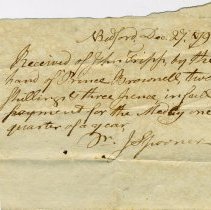 Bedford Dec 27, 179
Received of John Tripp, by the
hand of Prince Brownell two
shillings three pence in full
payment for the Medley one
quarter of a year
J Spooner